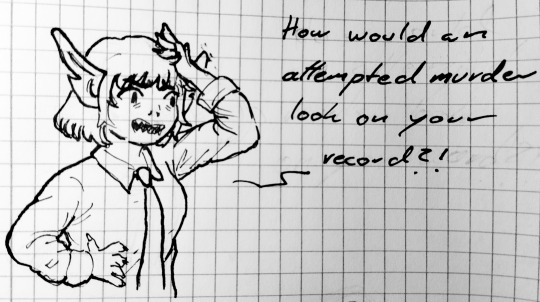 How would an
attempted murder
look on your
record?!